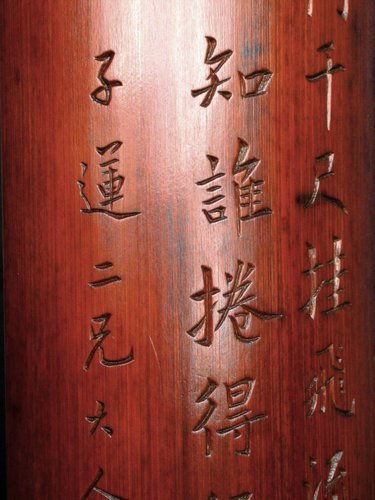 千尺挂飛流
知誰捲得
子運二兄大人